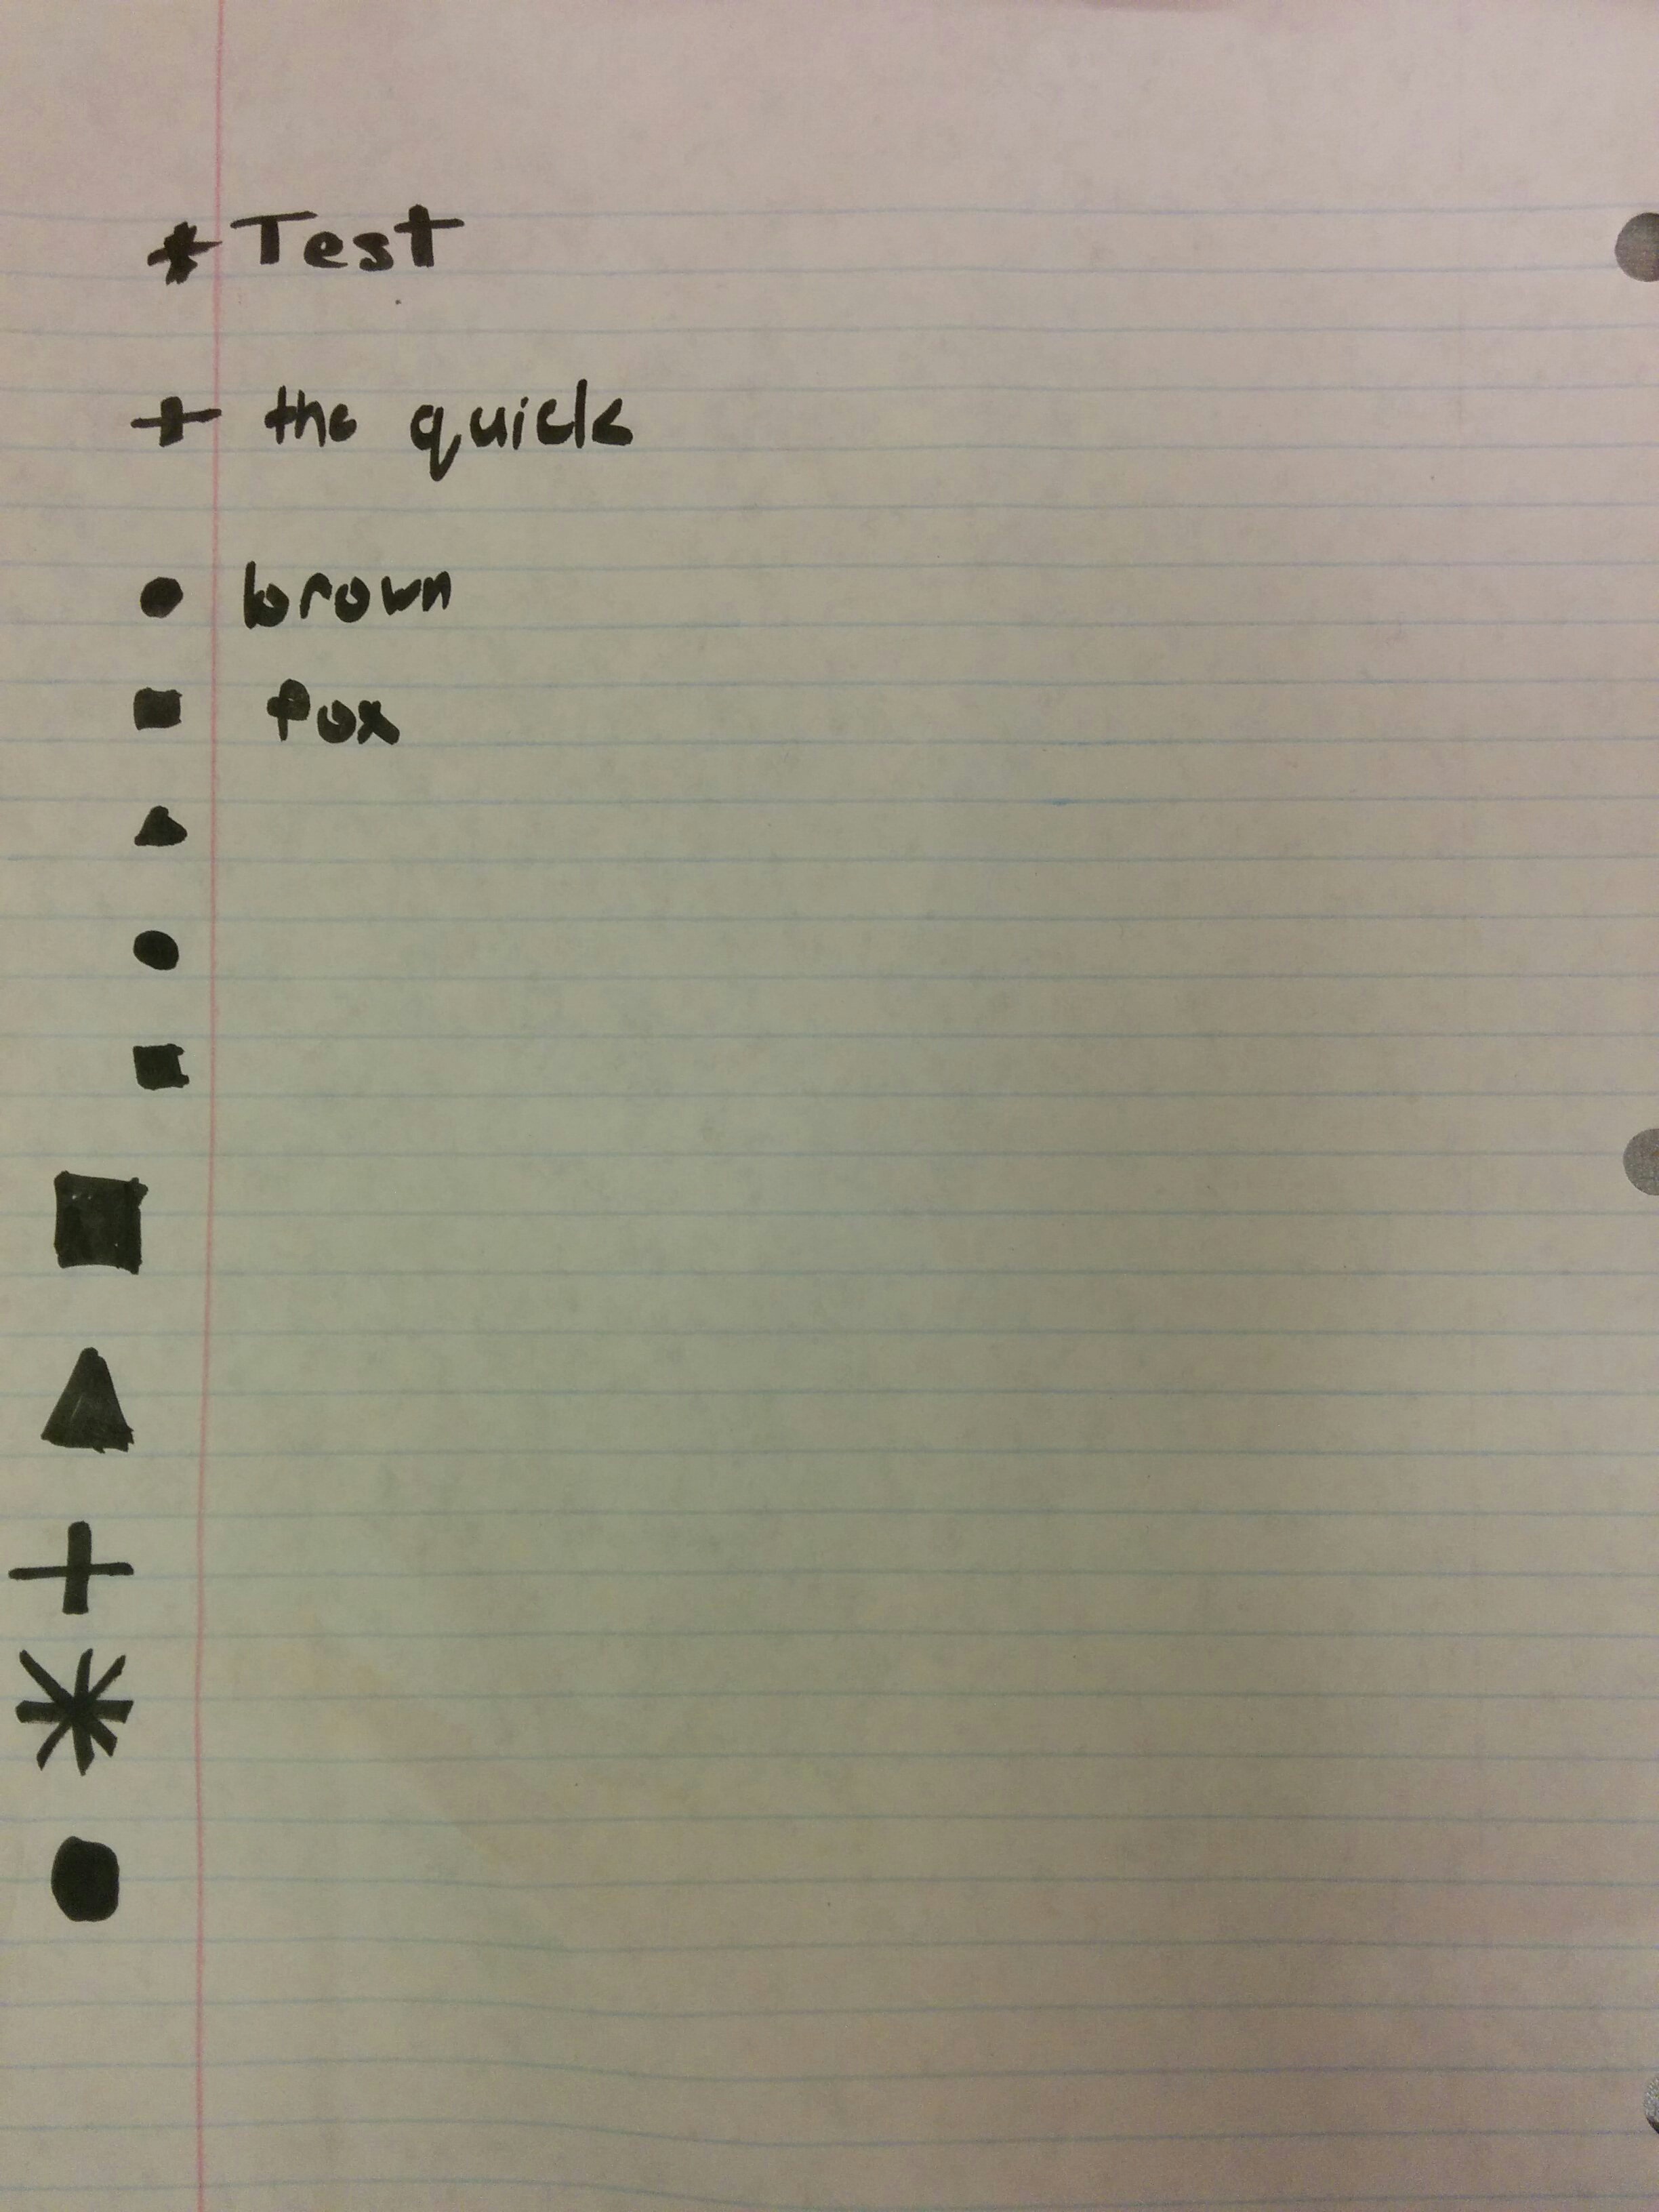 * Test
+ the quick
● brown
■ fox
▲
●
■
■
▲
+
*
●